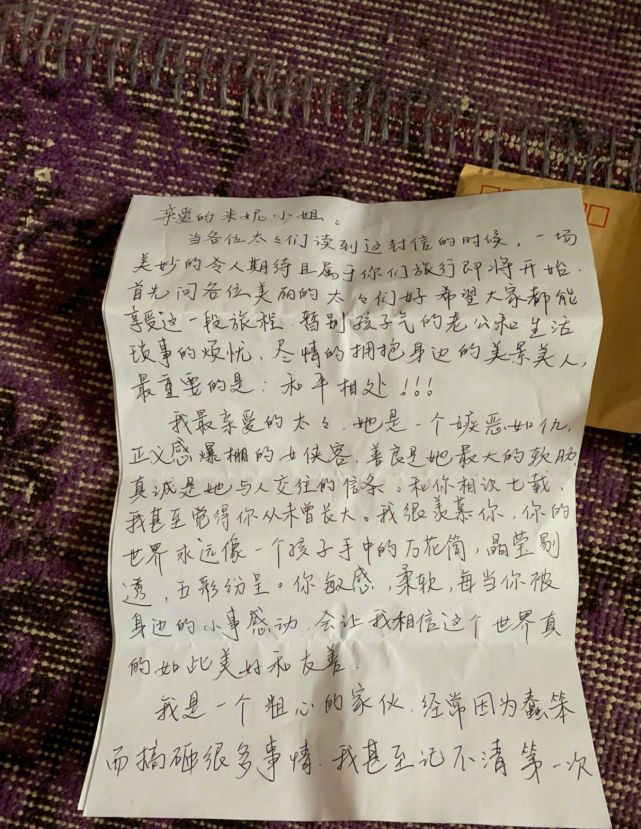 亲爱的米妮小姐：
当各位太々们读到这封信的时候，一场
美妙的令人期待且属于你们旅行即将开始.
首先问各位美丽的太々们好 希望大家都能
享受这一段旅程. 暂别孩子气的老公和生活
琐事的烦忧, 尽情的拥抱身边的美景美人,
最重要的是: 和平相处!!!
我最亲爱的太々. 她是一个嫉恶如仇,
正义感爆棚的女侠客. 善良是她最大的软肋,
真诚是她与人交往的信条。和你相识七载,
我甚至觉得你从未曾长大。我很羡慕你, 你的
世界永远像一个孩子手中的万花筒, 晶莹剔
透, 五彩纷呈。你敏感, 柔软, 每当你被
身边的小事感动. 会让我相信这个世界真
的如此美好和友善.
我是一个粗心的家伙. 经常因为蠢笨
而搞砸很多事情. 我甚至记不清第一次